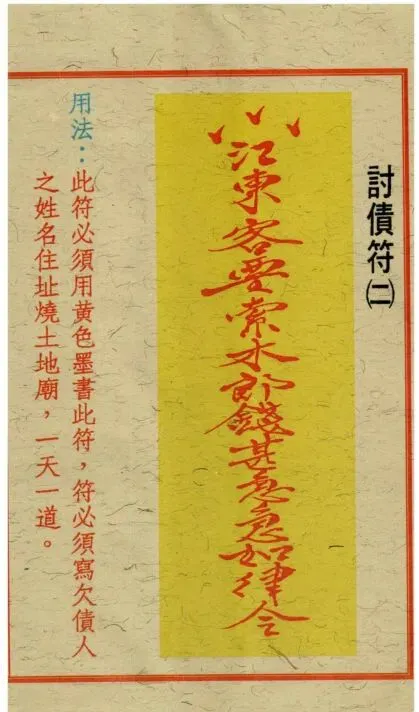 討債符㈡
江東客要索木郎錢甚急急如律令
用法：此符必須用黃色墨書此符，符必須寫欠債人
之姓名住址燒土地廟，一天一道。